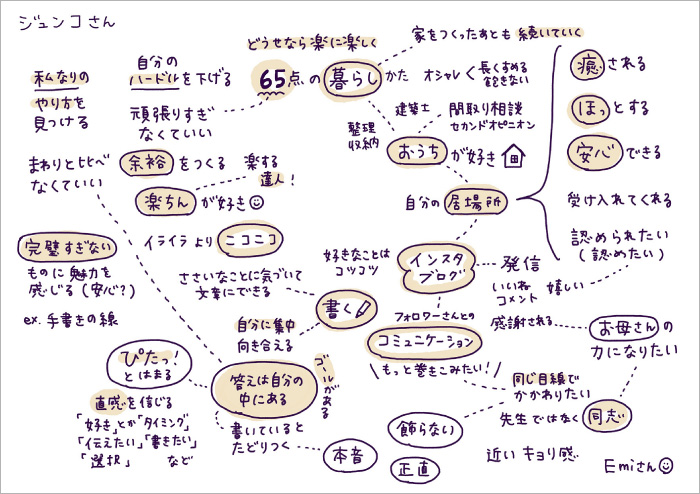 ジュンコさん
どうせなら楽に楽しく
65点の暮らしかた
家をつくったあとも続いていく
オシャレく長くすめる
飽きない
私なりの
やり方を
見つける
自分の
ハードルを下げる
頑張りすぎ
なくていい
整理
収納
建築士
間取り相談
セカンドオピニオン
おうちが好き
癒される
ほっとする
安心できる
まわりと比べ
なくていい
余裕をつくる
楽する
達人!
楽ちんが好き
自分の居場所
受け入れてくれる
認められたい
(認めたい)
完璧すぎない
ものに魅力を
感じる(安心?)
ex.手書きの線
イライラよりニコニコ
ささいなことに気づいて
文章にできる
好きなことは
コツコツ
インスタ
ブログ
発信
いいね
コメント
嬉しい
書く
フォロワーさんとの
コミュニケーション
もっと巻きこみたい!
感謝される
お母さんの
力になりたい
自分に集中
向き合える
ぴたっ!
とはまる
答えは自分の
中にある
ゴールがある
直感を信じる
「好き」とか「タイミング」
「伝えたい」「書きたい」
「選択」など
書いていると
たどりつく
本音
飾らない
正直
同じ目線で
かかわりたい
先生ではなく
同志
近いキョリ感
Emiさん